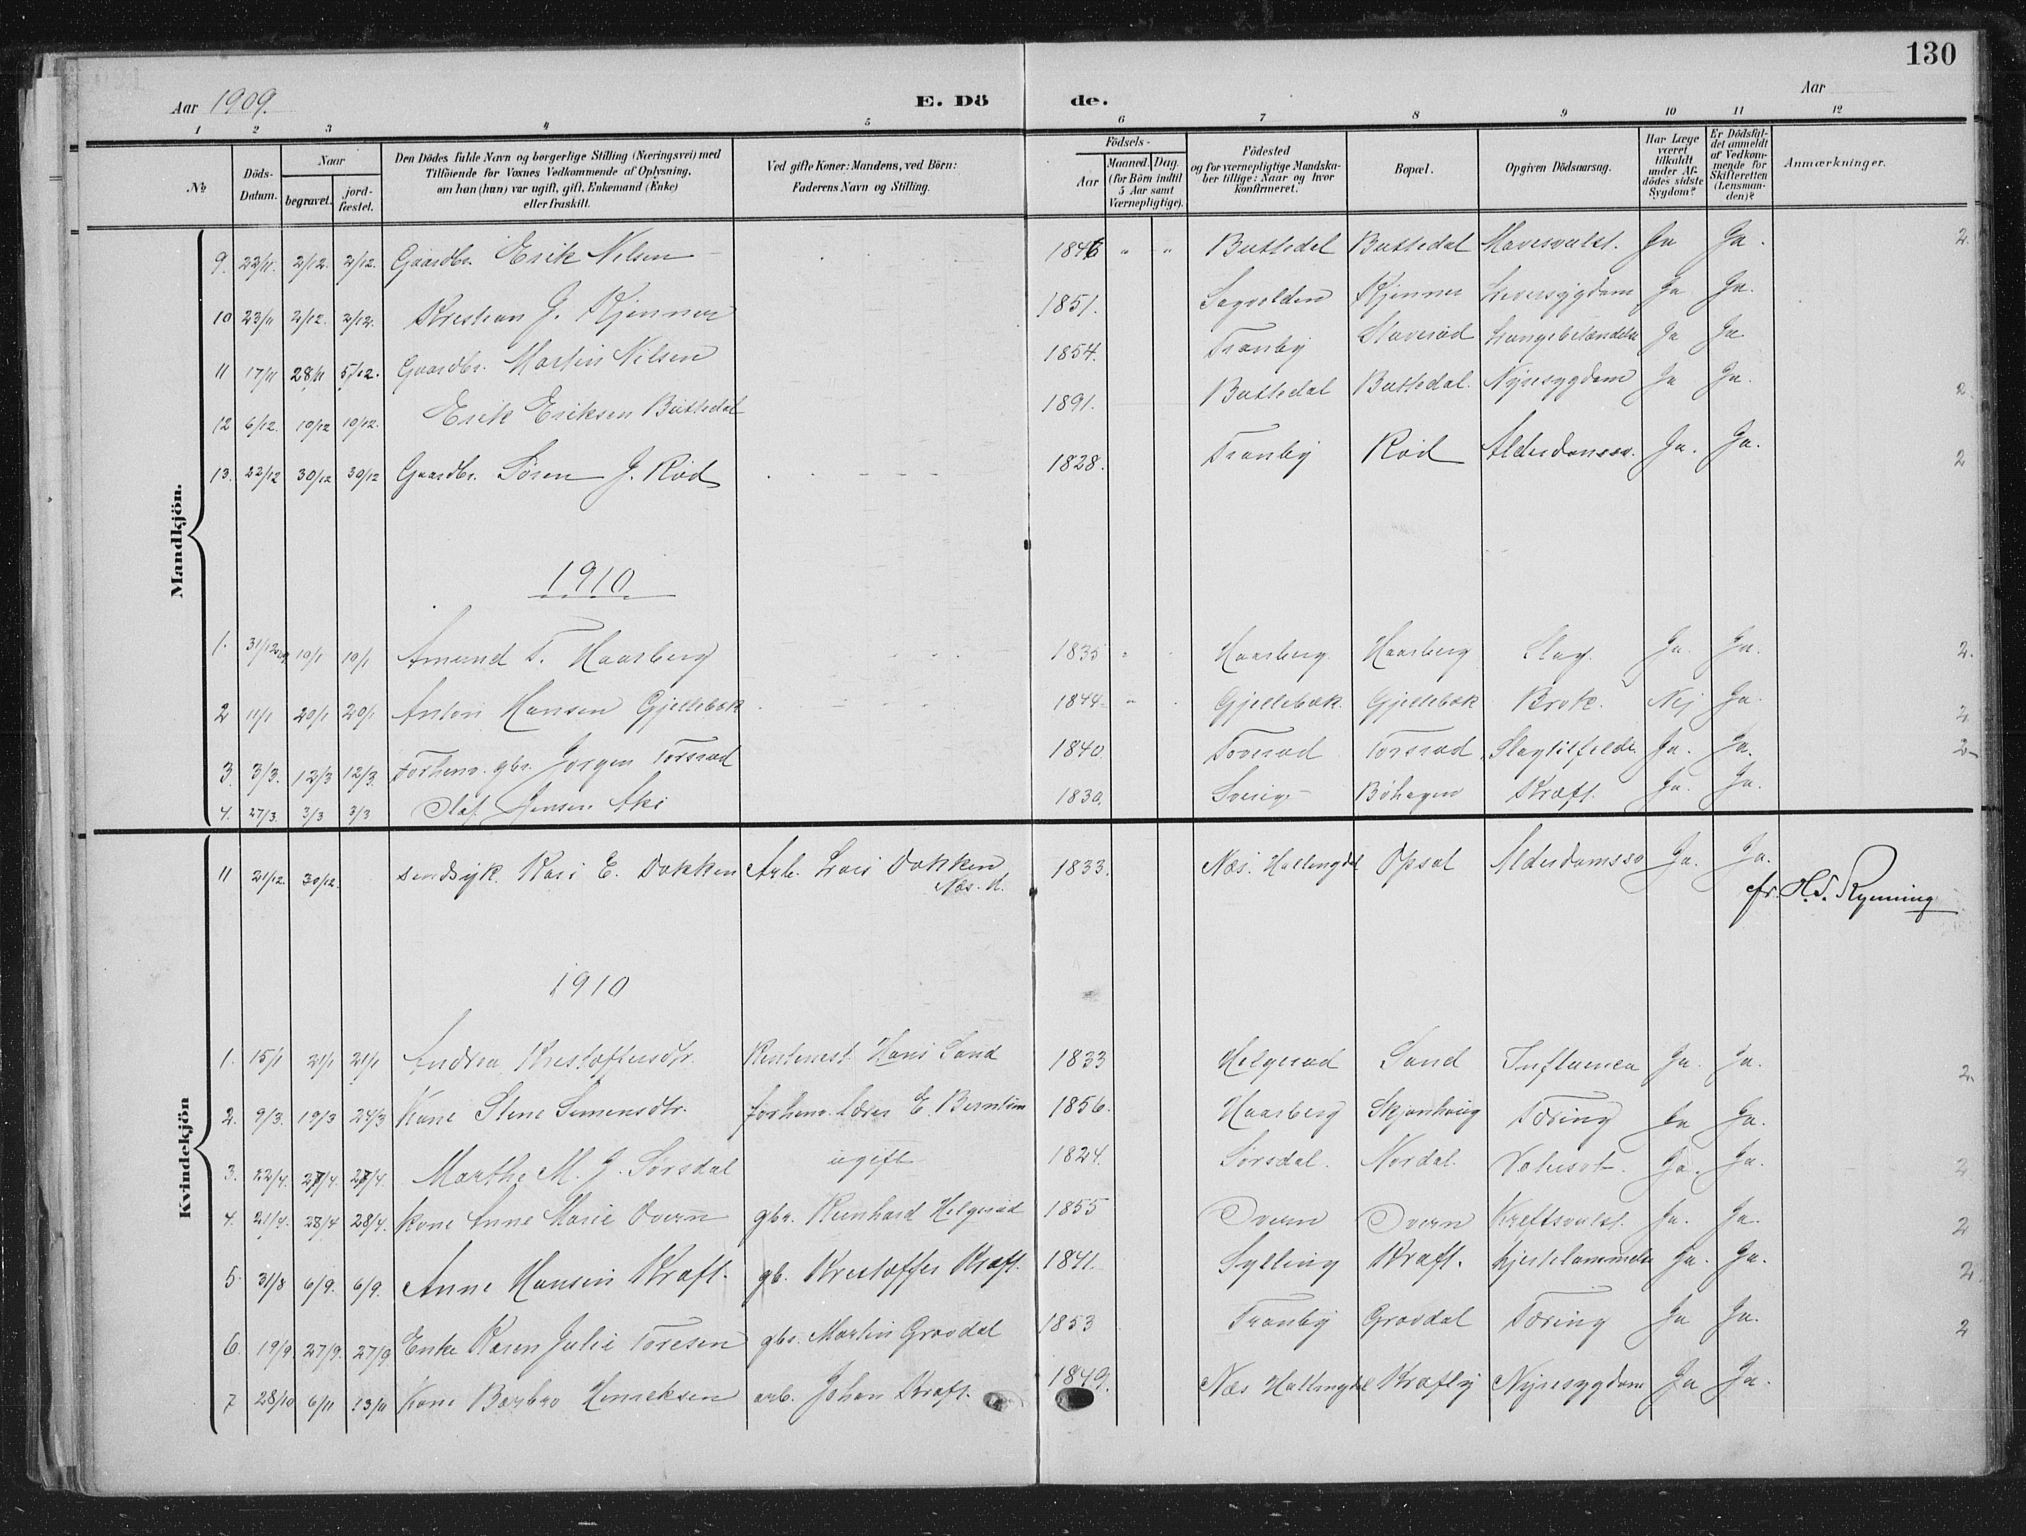 130
Aar 1909.
E. Dö de.
Aar
1 2 3 4 5 6 7 8 9 10 11 12
№
Döds-Datum.
Naar
begravet.
jord-fæstet.
Den Dödes fulde Navn og borgerlige Stilling (Næringsvei) med
Tilföiende for Voxnes Vedkommende af Oplysning,
om han (hun) var ugift, gift, Enkemand (Enke)
eller fraskilt.
Ved gifte Koner: Mandens, ved Börn:
Faderens Navn og Stilling.
Födsels-
Aar
Maaned. Dag.
(for Börn indtil
5 Aar samt
Værnepligtige).
Födested
og for værnepligtige Mandska-
ber tillige: Naar og hvor
konfirmeret.
Bopæl.
Opgiven Dödsaarsag.
Har Læge
været
tilkaldt
under Af-
dödes sidste
Sygdom?
Er Dödsfal-
det anmeldt
af Vedkom-
mende for
Skifteretten
(Lensman-
den)?
Anmærkninger.
Mandkjön.
9. 22/11. 2/12. 2/12. Gaardbr. Erik Nilsen 1846 " " Buttedal Buttedal Mavesvulst. Ja Ja. 2.
10 23/11 2/12. 2/12. Kristian J. Kjenner 1851. Sagvolden Kjenner Leversygdom Ja Ja.
11 17/11 28/11 5/12. Gaardbr. Martin Nilsen 1854. Tranby Staverød Lungebetændelse Ja Ja
12 6/12. 10/12 10/12. Erik Eriksen Buttedal 1891. Buttedal Buttedal. Nyresygdom Ja Ja. 2.
13. 22/12 30/12 30/12 Gaardbr. Søren J. Rød 1828. Tranby Rød Alderdomssv. Ja. Ja. 2
1910
1. 31/12 10/1 10/1 Amund T. Haarberg 1835 Haarberg Haarberg Slag. Ja. Ja. 2.
2 11/1 20/1 20/1 Anton Hansen Gjellebæk 1844 Gjellebæk Gjellebæk Brok. Nej Ja. 2.
3. 3/3. 12/3 12/3. Forhenv. gbr. Jørgen Torsrud 1840 Torsrud Slagtilfælde Ja. Ja. 2
4. 27/3. 3/3 3/3 Olaf Jensen 1830. Sverig Bøhagen Kræft. Ja. Ja.
Kvindekjön
11 21/12. 30/12. Kari E. Dokken Arb. Dokken 1833. Næs. Hallingdal Opsal Alderdomssv Ja. Ja.
Næs. H.
fr. H. S. Ryenning
1910
1. 15/1 21/1 21/1 Andrea Kristoffersdtr. Hans Sand 1833 Helgerud Sand Influenca Ja. Ja. 2
2. 9/3. 19/3 24/3 Kone Stene Simensdtr. forhenv. Lærer E. Berntsen 1856. Haarberg Skjønhaug Tæring Ja Ja.
3. 22/4. 27/4. 27/4. Marthe M. J. Sørsdal ugift 1824. Sørsdal. Nordal. Ja. Ja. 2
4. 21/4. 28/4 28/4. Kone Anne Marie Overn gbr. Reinhard Helgerud 1855 Overn Overn Kræftsvulst. Ja. Ja. 2
5. 31/8 6/9. 6/9. Anne Hansen Kræft. gb. Kristoffer Kræft. 1841. Sylling Kræft. Hjertelammelse Ja. Ja. 2.
6. 19/9 27/9. 27/9 Enke Karen Julie Toresen gbr. Martin Gravdal 1853 Tranby Gravdal Tæring Ja Ja. 2
7 28/10 6/11 13/11 Kone Barbro Henriksen arb. Johan Kræft. 1849. Næs Hallingdal Nyresygdom Ja Ja.